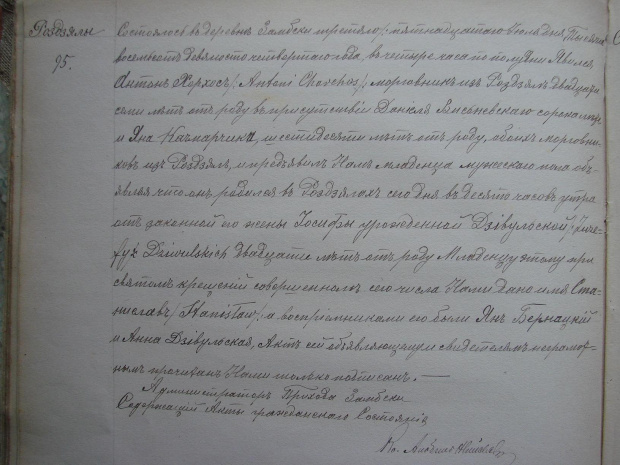 Роздзялы
95.
Состоялось въ деревнѣ Замбски третьяго /: пятнадцатаго Iюля дня, Тысяча
восемьсотъ девяносто четвертаго года, въ четыре часа по полудни. Явился
Антонъ Хорхосъ /: Antoni Chorchos :/ морговникъ изъ Роздзялъ двадцати
семи лѣтъ отъ роду въ присутствіи Даніеля Висьневскаго сорока
и Яна Качмарчика, шестидесяти лѣтъ отъ роду, обоихъ морговни-
ковъ изъ Роздзялъ, и предъявилъ Намъ младенца мужескаго пола объ-
являя что онъ родился въ Роздзялахъ сего дня въ десять часовъ утра
отъ законной его жены Іосифы урожденной Дзѣвульской,
Dziewulskich двадцати лѣтъ отъ роду Младенцу этому при
святомъ крещеніи совершенномъ сего числа Нами дано имя Ста-
ниславъ /: Stanisław :/, а воспріемниками его были Янъ Бернацкій
и Анна Дзѣвульская, Актъ сей объявляющему и свидетелямъ неграмот-
нымъ прочитанъ Нами только подписанъ. —
Администраторъ Прихода Замбски
Содержащій Акты гражданскаго Состоянія
Кс.